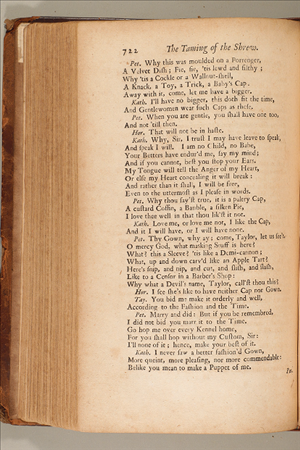 722 The Taming of the Shrew.
Pet. Why this was moulded on a Porrenger,
A Velvet Dish; Fie, fie, 'tis lewd and filthy;
Why 'tis a Cockle or a Wallnut-shell,
A Knack, a Toy, a Trick, a Baby's Cap:
Away with it, come, let me have a bigger.
Kath. I'll have no bigger, this doth fit the time,
And Gentlewomen wear such Caps as these.
Pet. When you are gentle, you shall have one too,
And not 'till then.
Hor. That will not be in haste.
Kath. Why, Sir, I trust I may have leave to speak,
And speak I will. I am no Child, no Babe,
Your Betters have endur'd me, say my mind;
And if you cannot, best you stop your Ears.
My Tongue will tell the Anger of my Heart,
Or else my Heart concealing it will break:
And rather than it shall, I will be free,
Even to the uttermost as I please in words.
Pet. Why thou say'st true, it is a paltry Cap,
A custard Coffin, a Bauble, a silken Pie,
I love thee well in that thou lik'st it not.
Kath. Love me, or love me not, I like the Cap,
And it I will have, or I will have none.
Pet. Thy Gown, why ay; come, Taylor, let us see't.
O mercy God, what masking Stuff is here!
What? this a Sleeve? 'tis like a Demi-cannon;
What, up and down carv'd like an Apple Tart?
Here's snip, and nip, and cut, and slish, and slash,
Like to a Censor in a Barber's Shop:
Why what a Devil's name, Taylor, call'st thou this?
Hor. I see she's like to have neither Cap nor Gown.
Tay. You bid me make it orderly and well,
According to the Fashion and the Time.
Pet. Marry and did: But if you be remembred,
I did not bid you marr it to the Time.
Go hop me over every Kennel home,
For you shall hop without my Custom, Sir:
I'll none of it; hence, make your best of it.
Kath. I never saw a better fashion'd Gown,
More queint, more pleasing, nor more commendable:
Belike you mean to make a Puppet of me.